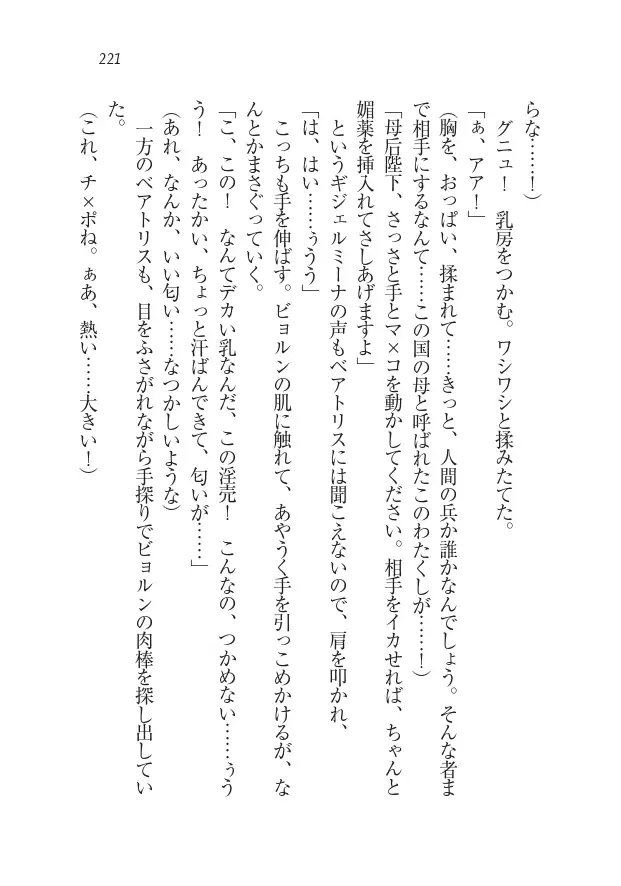 221
らな……！）
グニュ！　乳房をつかむ。ワシワシと揉みたてた。
「ぁ、アア！」
（胸を、おっぱい、揉まれて……きっと、人間の兵か誰かなんでしょう。そんな者ま
で相手にするなんて……この国の母と呼ばれたこのわたくしが……！）
「母后陛下、さっさと手とマ×コを動かしてください。相手をイカせれば、ちゃんと
媚薬を挿入れてさしあげますよ」
というギジェルミーナの声もベアトリスには聞こえないので、肩を叩かれ、
「は、はい……ぅうう」
こっちも手を伸ばす。ビョルンの肌に触れて、あやうく手を引っこめかけるが、な
んとかまさぐっていく。
「こ、この！　なんてデカい乳なんだ、この淫売！　こんなの、つかめない……ぅう
う！　あったかい、ちょっと汗ばんできて、匂いが……」
（あれ、なんか、いい匂い……なつかしいような）
一方のベアトリスも、目をふさがれながら手探りでビョルンの肉棒を探し出してい
た。
（これ、チ×ポね。ぁあ、熱い……大きい！）